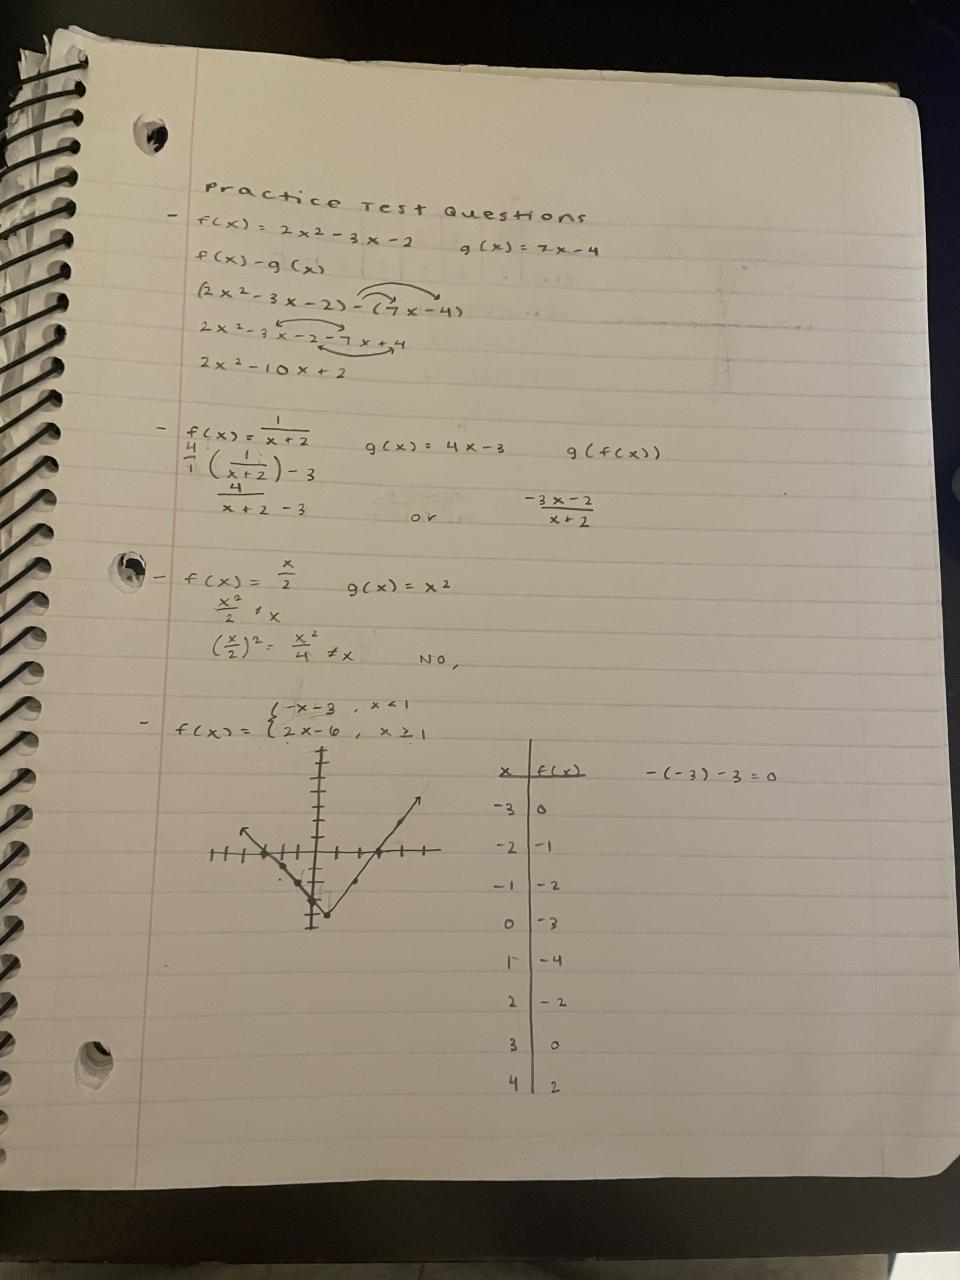 Practice Test Questions
- f(x) = 2x² - 3x - 2 g(x) = 7x - 4
f(x) - g(x)
(2x² - 3x - 2) - (7x - 4)
2x² - 3x - 2 - 7x + 4
2x² - 10x + 2
- f(x) = 1/(x + 2) g(x) = 4x - 3 g(f(x))
4/1 (1/(x+2)) - 3
4/(x + 2) - 3 or (-3x - 2)/(x + 2)
- f(x) = x/2 g(x) = x²
x²/2 ≠ x
(x/2)² = x²/4 ≠ x NO,
- f(x) = { -x - 3 , x < 1
{ 2x - 6 , x ≥ 1
x f(x) -(-3) - 3 = 0
-3 0
-2 -1
-1 -2
0 -3
1 -4
2 -2
3 0
4 2